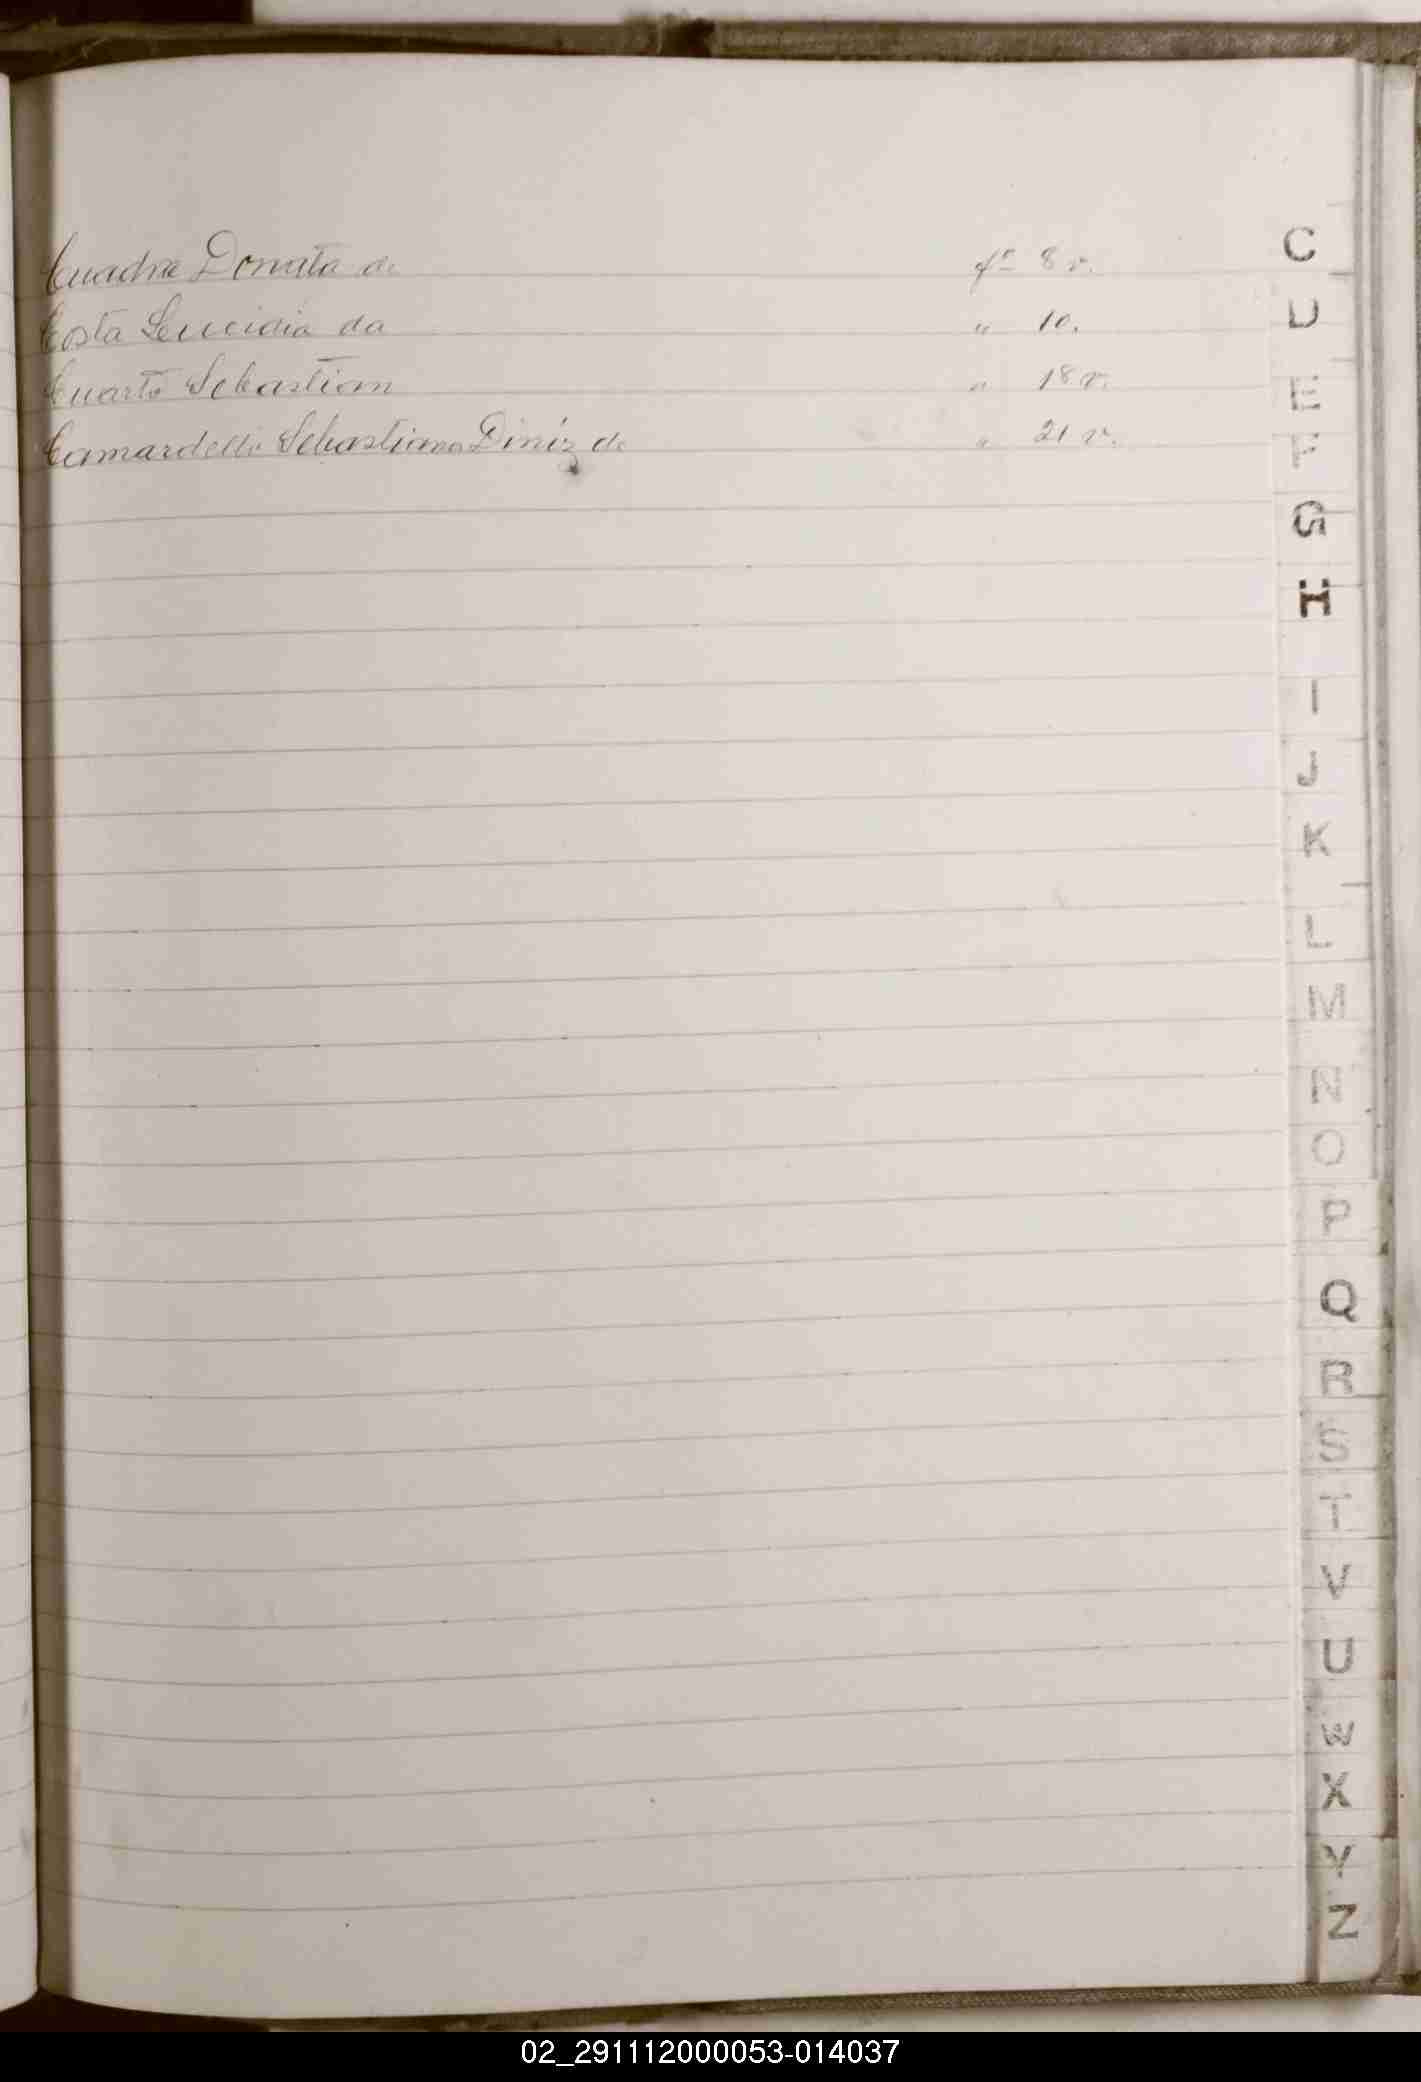 Cuadra Donata de fº 8 v.
Costa Leucidia da " 10.
Cuarto Sebastian " 18 v.
Camardelli Sebastiana Diniz de " 21 v.
C
D
E
F
G
H
I
J
K
L
M
N
O
P
Q
R
S
T
V
U
W
X
Y
Z
02_291112000053-014037